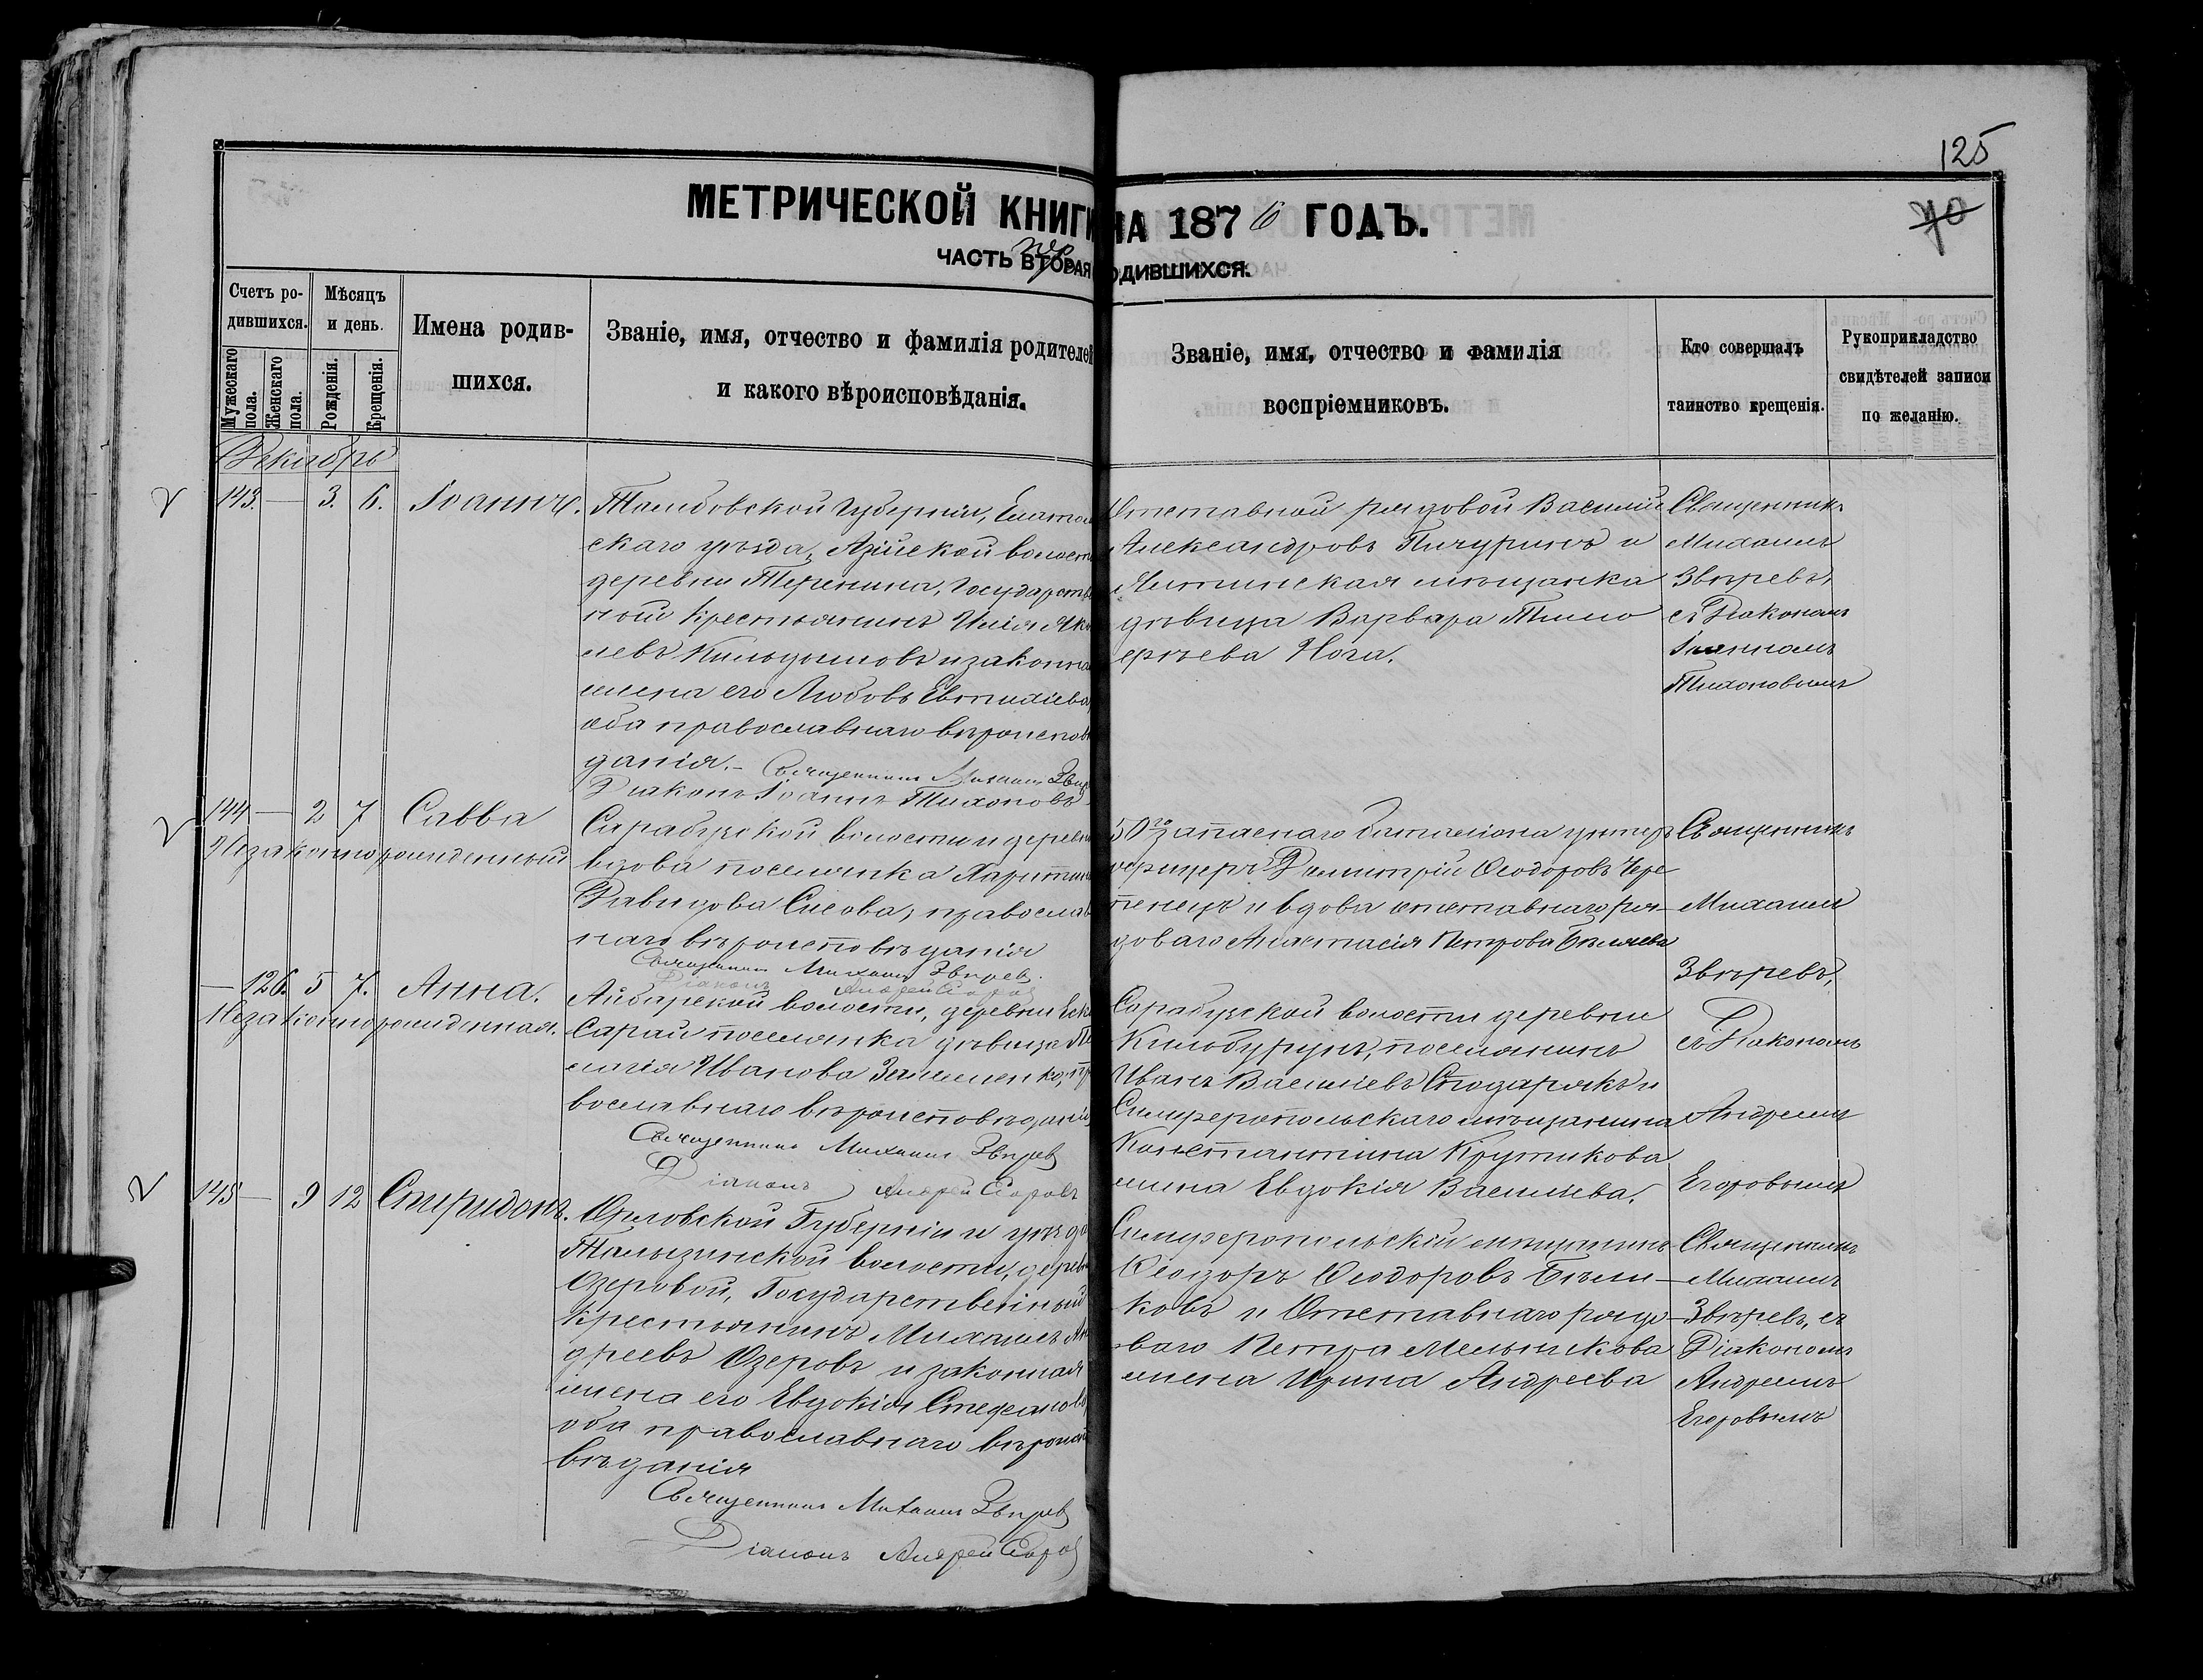 125
70
МЕТРИЧЕСКОЙ КНИГИ НА 1876 ГОДЪ.
ЧАСТЬ ВТОРАЯ РОДИВШИХСЯ.
Счетъ ро-
дившихся.
Мужескаго пола.
Женскаго пола.
Мѣсяцъ
и день.
Рожденія.
Крещенія.
Имена родив-
шихся.
Званіе, имя, отчество и фамилія родителей
и какого вѣроисповѣданія.
Званіе, имя, отчество и фамилія
воспріемниковъ.
Кто совершалъ
таинство крещенія.
Рукоприкладство
свидѣтелей записи
по желанію.
Декабрь
143. — 3. 6. Іоаннъ.
Тамбовской Губерніи,
скаго уѣзда, Азійской волости
деревни Теренина, Государствен
ный крестьянинъ Илія Яко
левъ и законная
жена его Любовь
оба православнаго вѣроисповѣ
данія. — Священникъ Михаилъ Звѣрев
Діаконъ Іоаннъ Тихоновъ
Отставной рядовой Василій
Александровъ Пичугинъ и
мѣщанка
дѣвица Варвара Тимо
ѳеева Нога.
Священникъ
Михаилъ
Звѣревъ,
съ Діакономъ
Іоанномъ
Тихоновымъ
144 — 2 7 Савва
Незаконнорожденный
Сарабузской волости и деревни
вдова поселянка Харитина
Давидова Сисова, православ
наго вѣроисповѣданія
Священникъ Михаилъ Звѣрев.
Діаконъ Андрей Егоров
50го запаснаго баталіона унтеръ
офицеръ Димитрій Ѳеодоровъ Чере
пенецъ и вдова отставнаго ря-
доваго Анастасія Петрова Бѣляева
Священникъ
Михаилъ
Звѣревъ,
съ Діакономъ
Андреемъ
Егоровымъ
— 126. 5 7. Анна.
Незаконнорожденная.
Айбарской волости, деревни
Сарай поселянка дѣвица Пе
лагія Иванова пра
вославнаго вѣроисповѣданія
Священникъ Михаилъ Звѣрев
Діаконъ Андрей Егоровъ
Сарабузской волости деревни
Кильбурунъ, поселянинъ
Иванъ Василіевъ и
Симферопольскаго мѣщанина
Константина Крутикова
жена Евдокія Васильева.
145 — 9 12 Спиридонъ.
Орловской Губерніи и уѣзда
Талызинской волости, дерев
Озеровой, Государственный
крестьянинъ Михаилъ Ан
дреевъ Озеровъ и законная
жена его Евдокія Стефанова
оба православнаго вѣроиспо
вѣданія
Священникъ Михаилъ Звѣрев
Діаконъ Андрей Егоров
Симферопольскій мѣщанинъ
Ѳеодоръ Ѳеодоровъ Бѣли-
ковъ и Отставнаго рядо-
ваго Петра Мельникова
жена Ирина Андреева
Священникъ
Михаилъ
Звѣревъ, съ
Діакономъ
Андреемъ
Егоровымъ